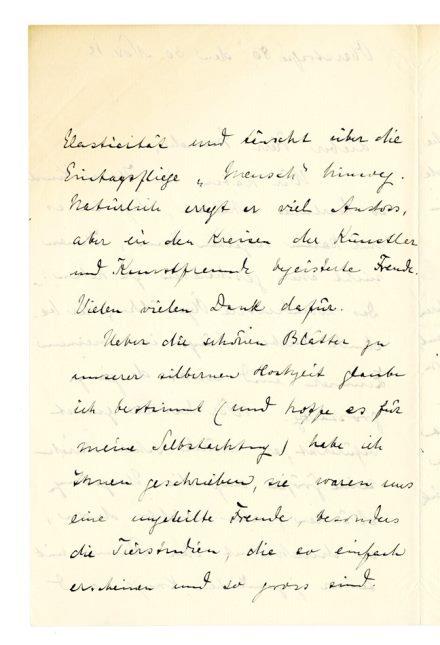 Elasticität und täuscht über die
Eintagsfliege „Mensch" hinweg.
Natürlich erregt er viel Anstoss,
aber in den Kreisen der Künstler
und Kunstfreunde begeisterte Freude.
Vielen vielen Dank dafür.
Ueber die schönen Blätter zu
unserer silbernen Hochzeit glaube
ich bestimmt (und hoffe es für
meine Selbstachtung) habe ich
Ihnen geschrieben, sie waren uns
eine ungeteilte Freude, besonders
die Tierstudien, die so einfach
erscheinen und so gross sind.